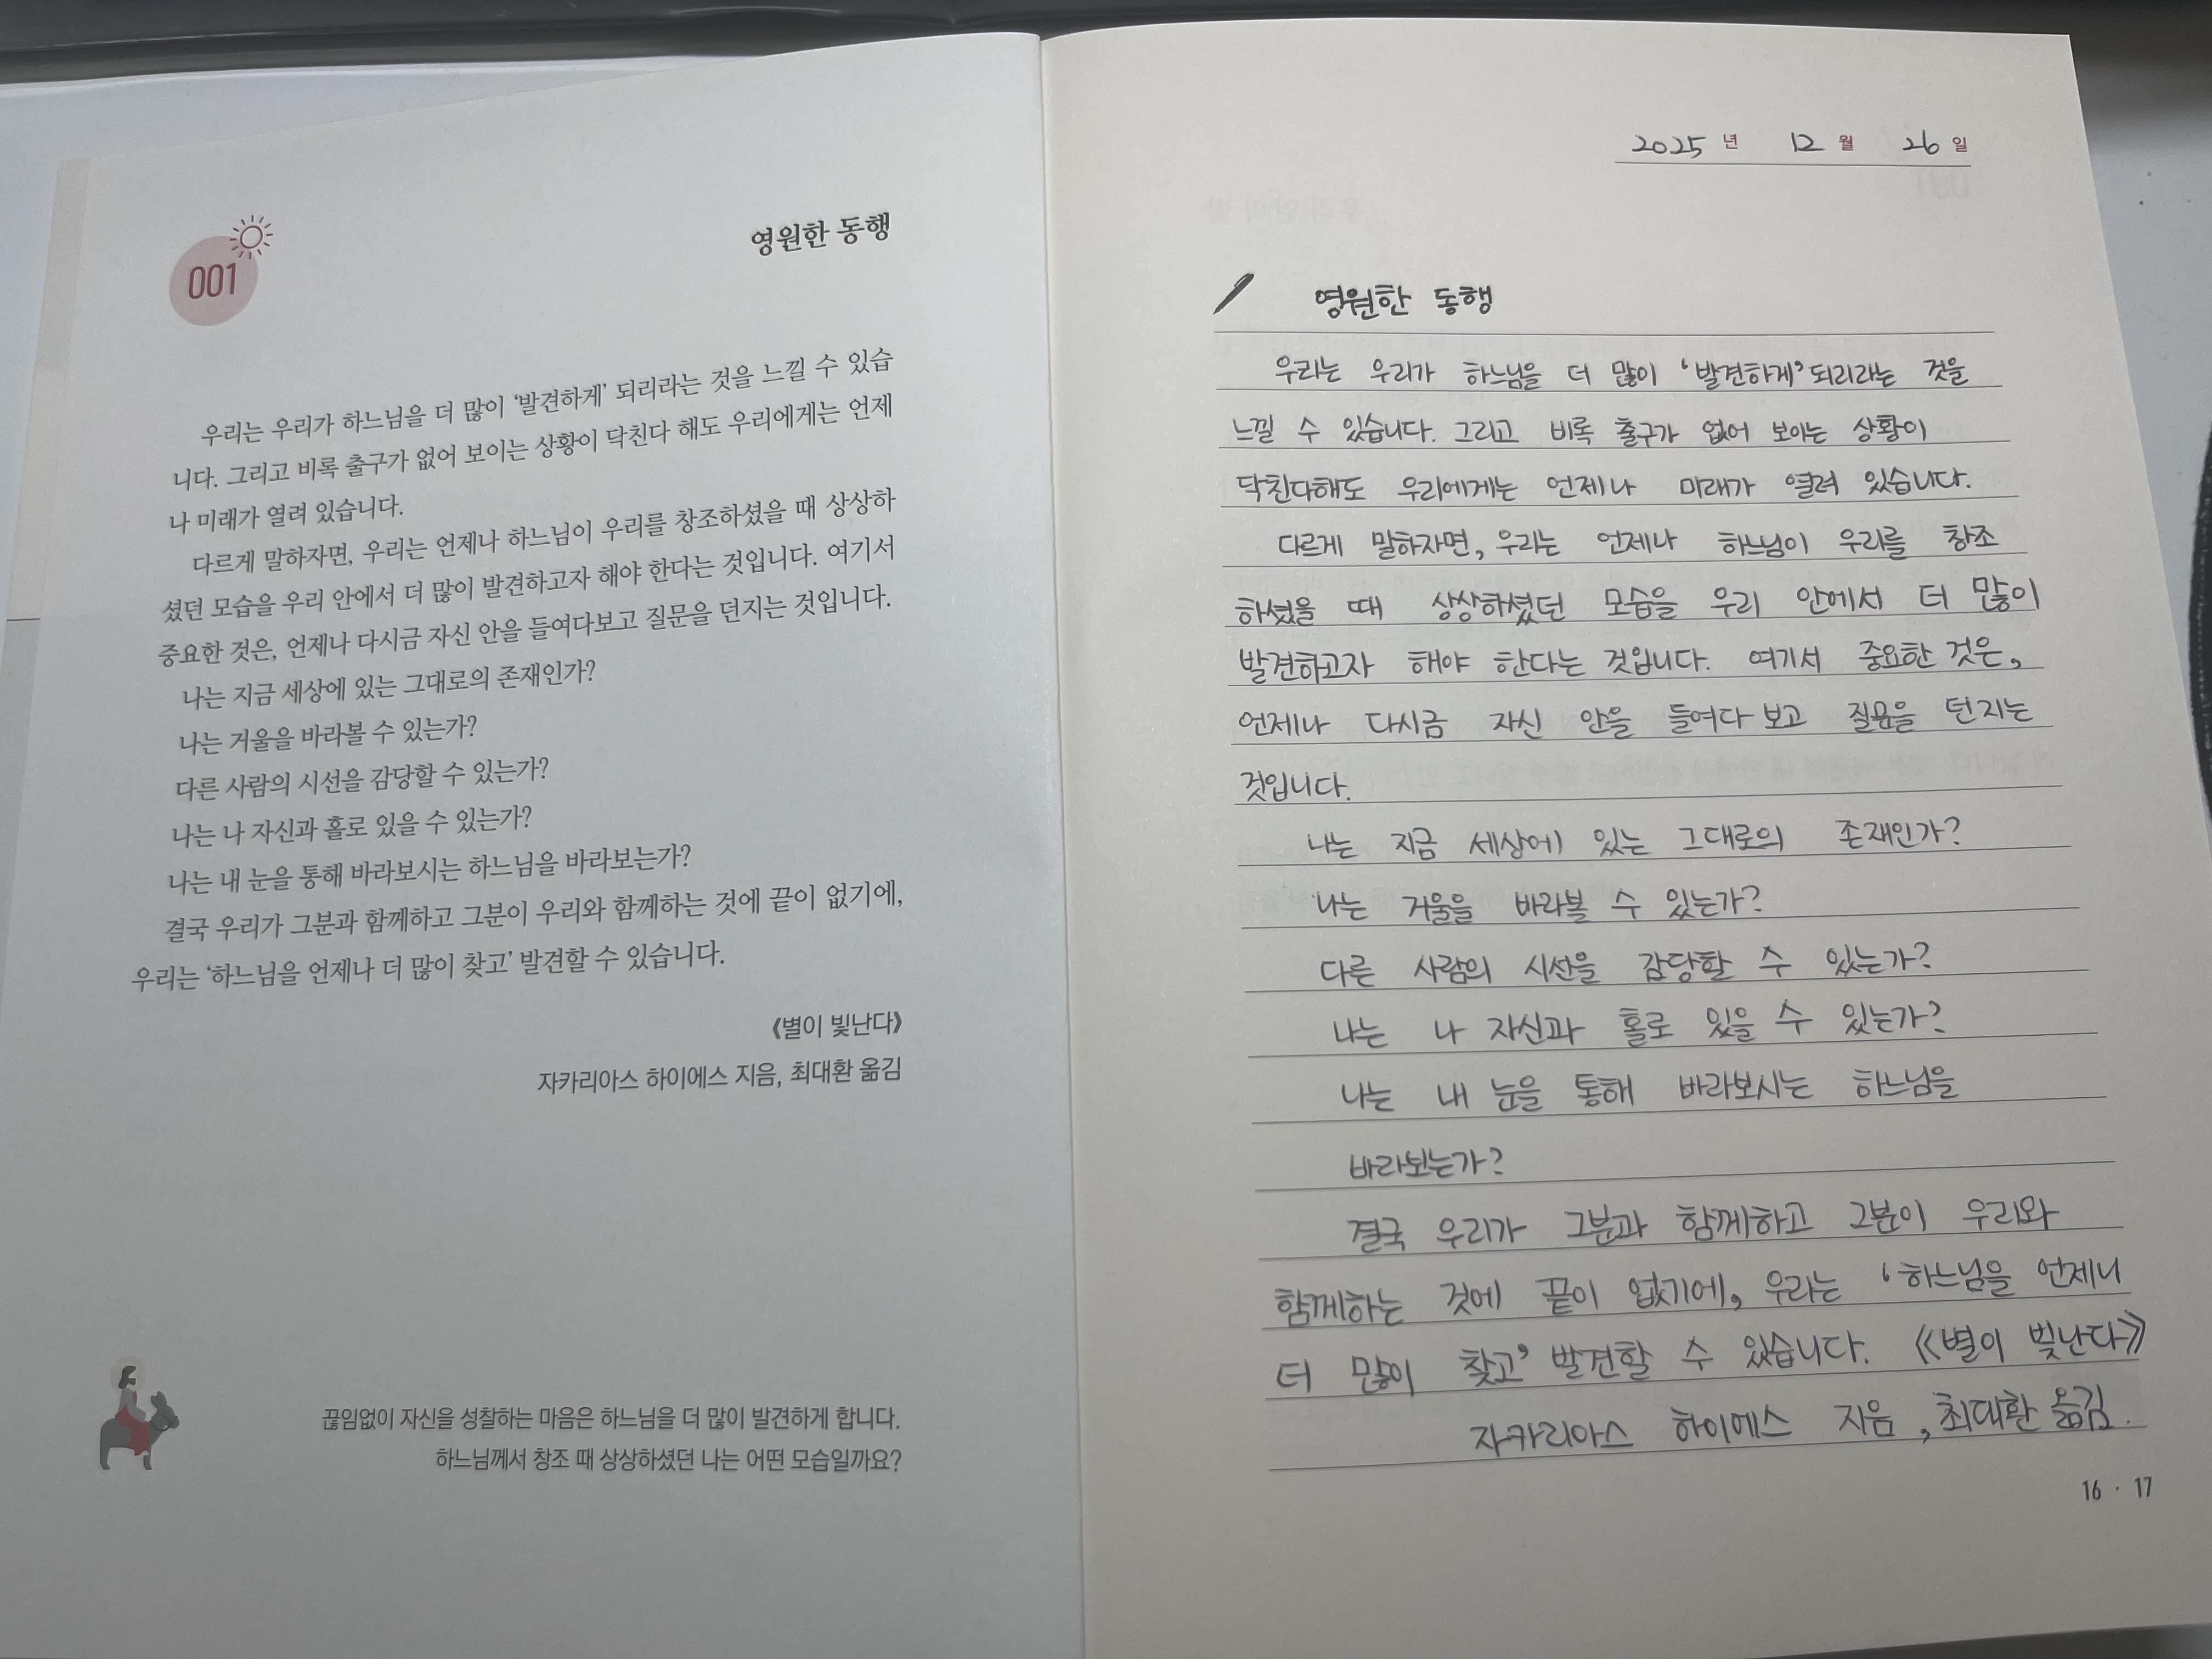 001
영원한 동행
우리는 우리가 하느님을 더 많이 ‘발견하게’ 되리라는 것을 느낄 수 있습
니다. 그리고 비록 출구가 없어 보이는 상황이 닥친다 해도 우리에게는 언제
나 미래가 열려 있습니다.
다르게 말하자면, 우리는 언제나 하느님이 우리를 창조하셨을 때 상상하
셨던 모습을 우리 안에서 더 많이 발견하고자 해야 한다는 것입니다. 여기서
중요한 것은, 언제나 다시금 자신 안을 들여다보고 질문을 던지는 것입니다.
나는 지금 세상에 있는 그대로의 존재인가?
나는 거울을 바라볼 수 있는가?
다른 사람의 시선을 감당할 수 있는가?
나는 나 자신과 홀로 있을 수 있는가?
나는 내 눈을 통해 바라보시는 하느님을 바라보는가?
결국 우리가 그분과 함께하고 그분이 우리와 함께하는 것에 끝이 없기에,
우리는 ‘하느님을 언제나 더 많이 찾고’ 발견할 수 있습니다.
《별이 빛난다》
자카리아스 하이에스 지음, 최대환 옮김
끊임없이 자신을 성찰하는 마음은 하느님을 더 많이 발견하게 합니다.
하느님께서 창조 때 상상하셨던 나는 어떤 모습일까요?
2025 년 12 월 26 일
영원한 동행
우리는 우리가 하느님을 더 많이 ‘발견하게’ 되리라는 것을
느낄 수 있습니다. 그리고 비록 출구가 없어 보이는 상황이
닥친다해도 우리에게는 언제나 미래가 열려 있습니다.
다르게 말하자면, 우리는 언제나 하느님이 우리를 창조
하셨을 때 상상하셨던 모습을 우리 안에서 더 많이
발견하고자 해야 한다는 것입니다. 여기서 중요한 것은,
언제나 다시금 자신 안을 들여다 보고 질문을 던지는
것입니다.
나는 지금 세상에 있는 그대로의 존재인가?
나는 거울을 바라볼 수 있는가?
다른 사람의 시선을 감당할 수 있는가?
나는 나 자신과 홀로 있을 수 있는가?
나는 내 눈을 통해 바라보시는 하느님을
바라보는가?
결국 우리가 그분과 함께하고 그분이 우리와
함께하는 것에 끝이 없기에, 우리는 ‘하느님을 언제나
더 많이 찾고’ 발견할 수 있습니다. 《별이 빛난다》
자카리아스 하이에스 지음, 최대환 옮김.
16 · 17